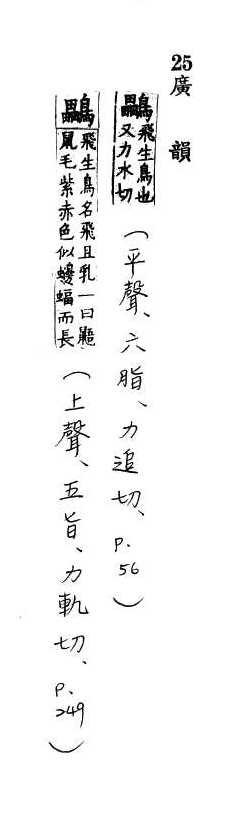 25 廣韻
鸓 飛生鳥也
又力水切
(平聲、六脂、力追切、P.56)
鸓 飛生鳥名飛且乳一曰鼯
鼠毛紫赤色似蝙蝠而長
(上聲、五旨、力軌切、P.249)